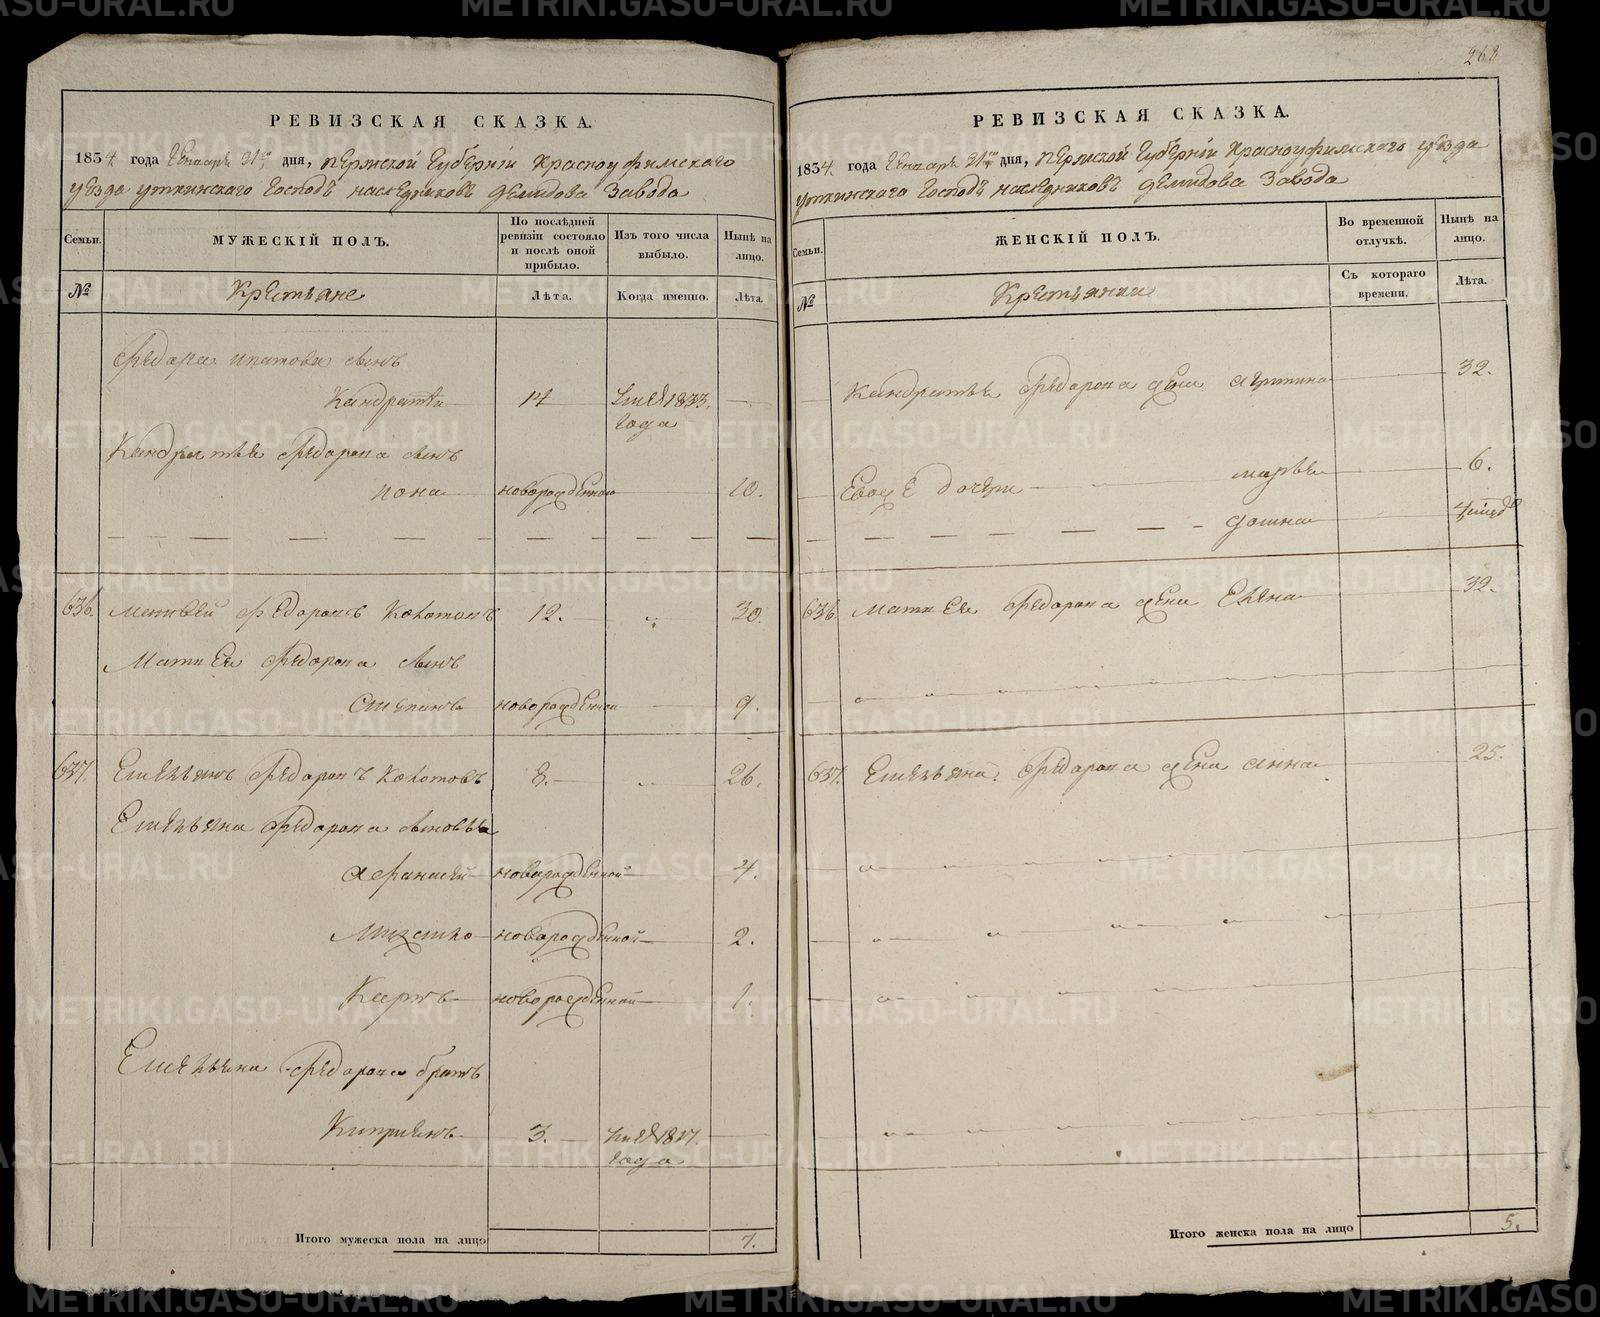 268
РЕВИЗСКАЯ СКАЗКА.
1834 года Генваря 21го дня, Пермской Губерніи Красноуфимскаго
уезда уткинскаго Господъ наследниковъ Демидова Завода
Семьи. МУЖЕСКІЙ ПОЛЪ. По послѣдней ревизіи состояло и послѣ оной прибыло. Изъ того числа выбыло. Нынѣ на лицо.
№ Крестьяне Лѣта. Когда именно. Лѣта.
Федора ипатова сынъ
Кандратей 14 1833. года
Кандратья Федорова сынъ
иона новорожденной 10.
636. Матвей Федоровъ 12. „ 30.
Матвея Федорова сынъ
Степанъ новорожденной 9.
637. Емельянъ Федоровъ 8. „ 26.
Емельяна Федорова сыновья
Афанасей новорожденной 4.
Михайло новорожденной 2.
Карпъ новорожденной 1.
Емельяна Федорова братъ
Киприянъ 3. года
Итого мужеска пола на лицо 7.
РЕВИЗСКАЯ СКАЗКА.
1834 года Генваря 21го дня, Пермской Губерніи Красноуфимскаго уезда
уткинскаго Господъ наследниковъ Демидова Завода
Семьи. ЖЕНСКІЙ ПОЛЪ. Во временной отлучкѣ. Нынѣ на лицо.
№ Крестьянки Съ котораго времени. Лѣта.
Кандратья Федорова жена 32.
Евоже дочери марья 6.
домна
636 Матвея Федорова жена Елена 32.
637. Емельяна Федорова жена анна 25.
Итого женска пола на лицо 5.
METRIKI.GASO-URAL.RU